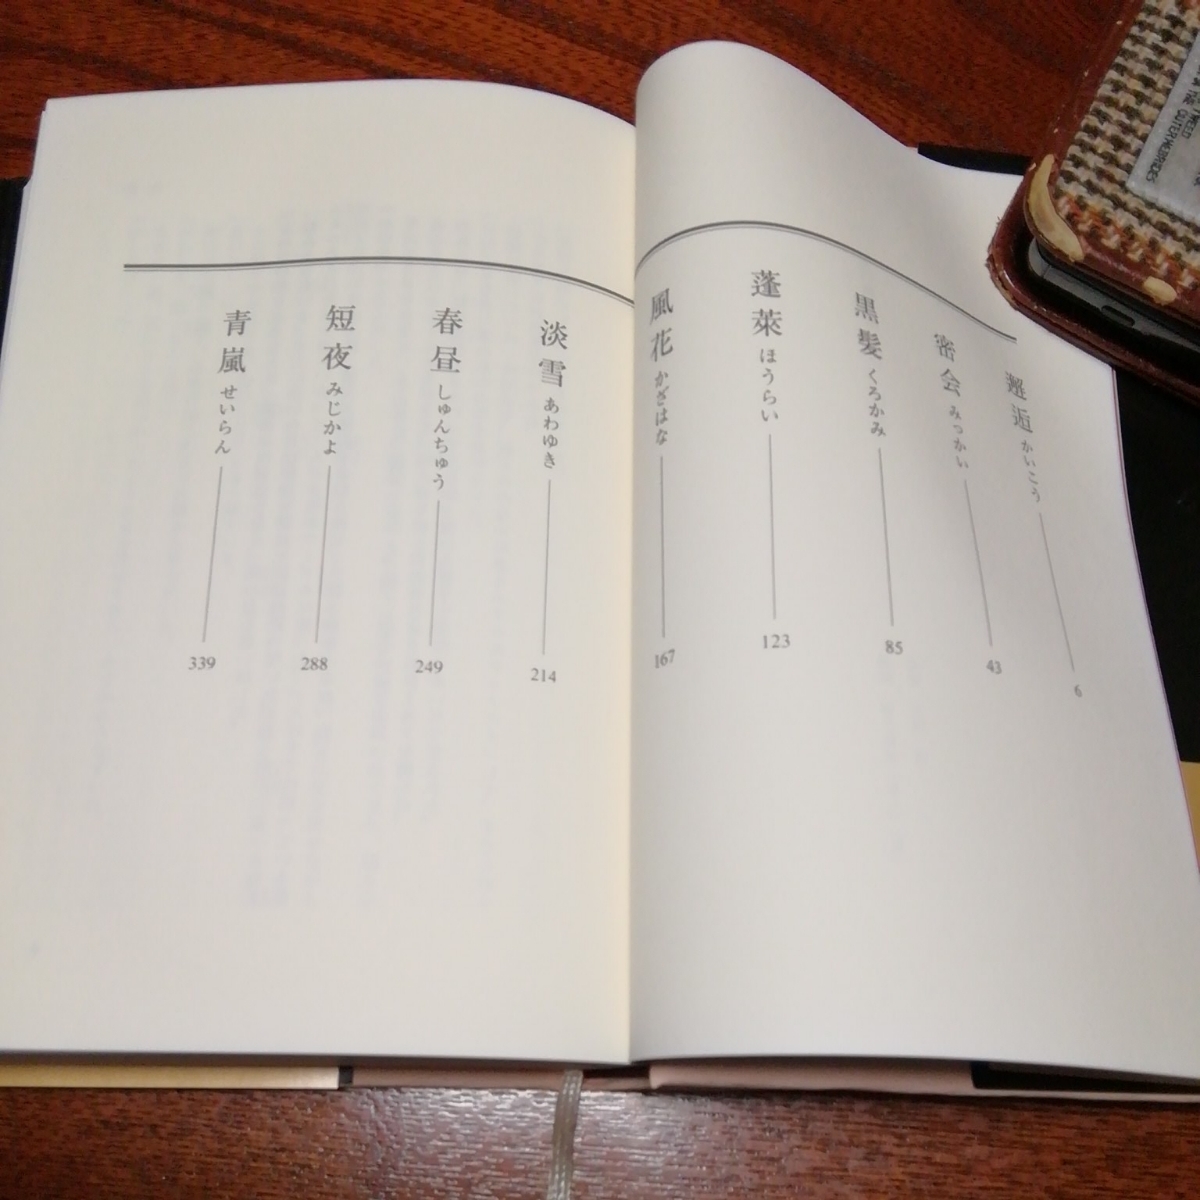 邂逅 かいこう 6
密会 みっかい 43
黒髪 くろかみ 85
蓬萊 ほうらい 123
風花 かざはな 167
淡雪 あわゆき 214
春昼 しゅんちゅう 249
短夜 みじかよ 288
青嵐 せいらん 339
TWEED
OUTER HEBRIDES